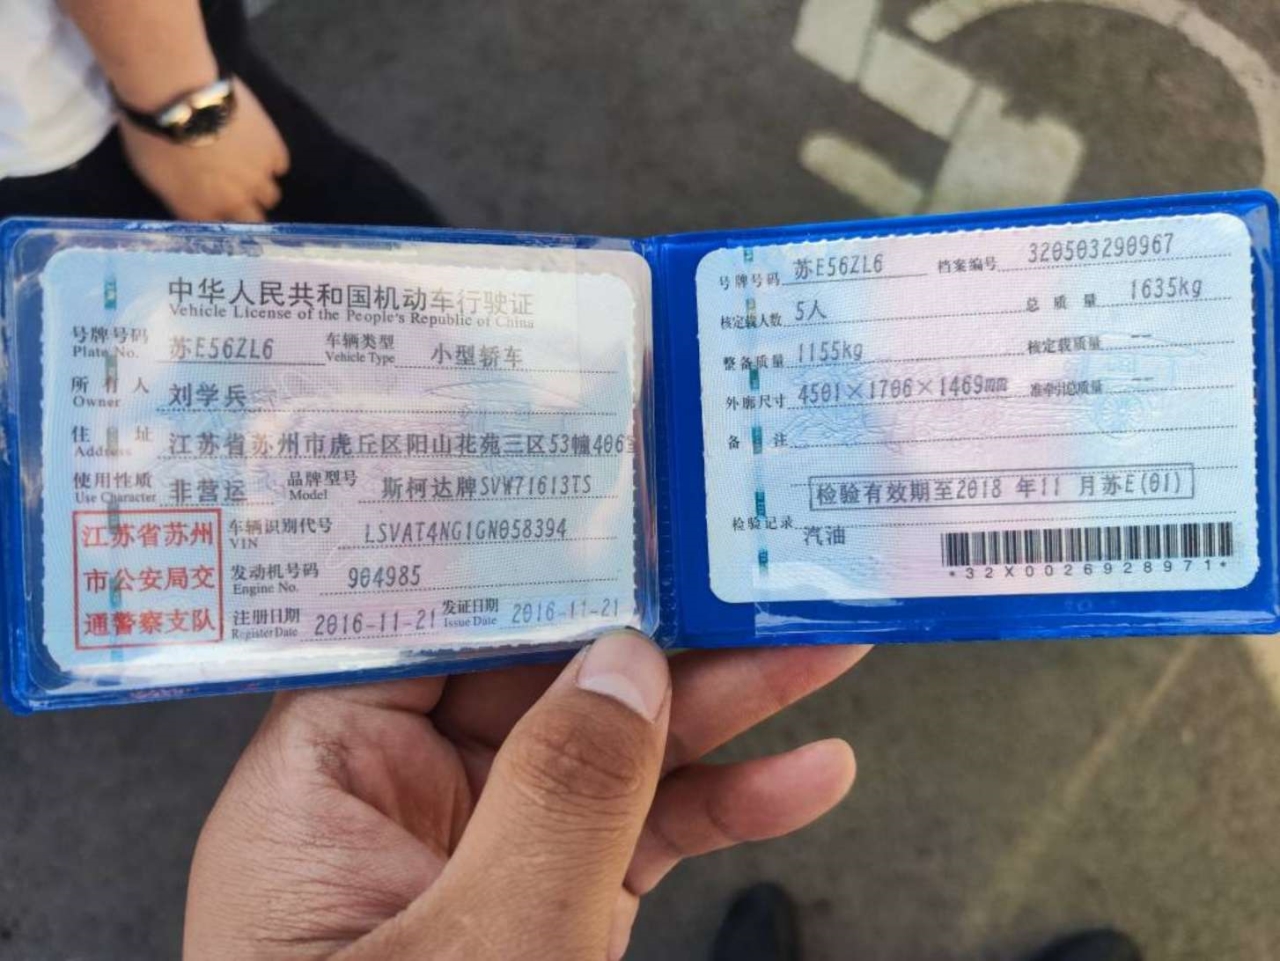 中华人民共和国机动车行驶证
Vehicle License of the People's Republic of China
号牌号码 苏E56ZL6 车辆类型 小型轿车
Plate No. Vehicle Type
所有人 刘学兵
Owner
住址 江苏省苏州市虎丘区阳山花苑三区53幢406室
Address
使用性质 非营运 品牌型号 斯柯达牌SVW71613TS
Use Character Model
江苏省苏州
市公安局交
通警察支队
车辆识别代号 LSVAT4NG1GN058394
VIN
发动机号码 904985
Engine No.
注册日期 2016-11-21 发证日期 2016-11-21
Register Date Issue Date
号牌号码 苏E56ZL6 档案编号 320503290967
核定载人数 5人 总质量 1635kg
整备质量 1155kg 核定载质量 --
外廓尺寸 4501×1706×1469mm 准牵引总质量 --
备注
检验有效期至2018 年11 月苏E(01)
检验记录 汽油
*32X0026928971*